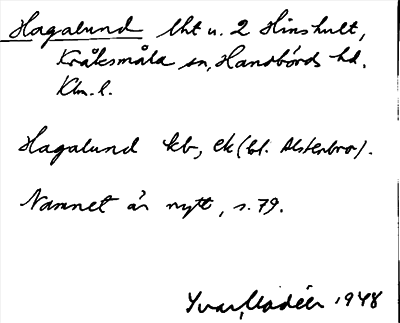 Hagalund lht u. 2 Hinshult,
Kråksmåla sn, Handbörds hd.
Klm. l.
Hagalund kb, ek (bl. Alsterbro).
Namnet är nytt, s. 79.
Yvar Modéer 1948